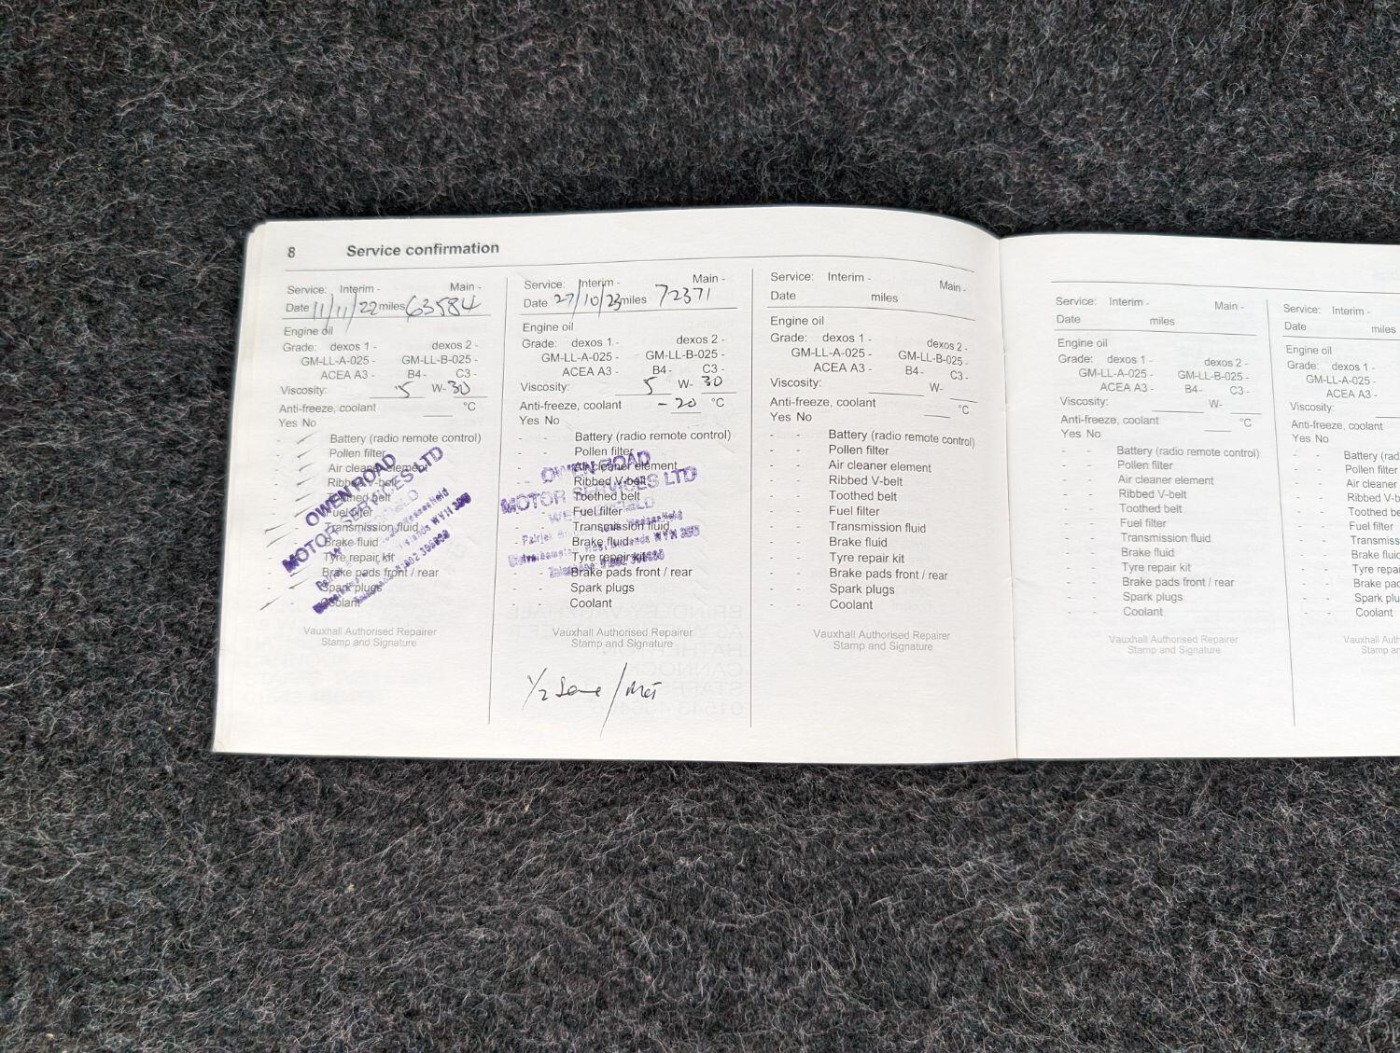 8 Service confirmation
Service: Interim - Main -
Date 11/11/22 miles 63584
Engine oil
Grade: dexos 1 - dexos 2 -
GM-LL-A-025 - GM-LL-B-025 -
ACEA A3 - B4- C3 -
Viscosity: 5 W- 30
Anti-freeze, coolant °C
Yes No
Battery (radio remote control)
Pollen filter
Air cleaner element
Ribbed V-belt
Toothed belt
Fuel filter
Transmission fluid
Brake fluid
Tyre repair kit
Brake pads front / rear
Spark plugs
Coolant
OWEN ROAD
MOTOR SERVICES LTD
Vauxhall Authorised Repairer
Stamp and Signature
Service: Interim - Main -
Date 27/10/23 miles 72371
Engine oil
Grade: dexos 1 - dexos 2 -
GM-LL-A-025 - GM-LL-B-025 -
ACEA A3 - B4- C3 -
Viscosity: 5 W- 30
Anti-freeze, coolant -20 °C
Yes No
Battery (radio remote control)
Pollen filter
Air cleaner element
Ribbed V-belt
Toothed belt
Fuel filter
Transmission fluid
Brake fluid
Tyre repair kit
Brake pads front / rear
Spark plugs
Coolant
OWEN ROAD
MOTOR SERVICES LTD
Vauxhall Authorised Repairer
Stamp and Signature
1/2
Service: Interim - Main -
Date miles
Engine oil
Grade: dexos 1 - dexos 2 -
GM-LL-A-025 - GM-LL-B-025 -
ACEA A3 - B4- C3 -
Viscosity: W-
Anti-freeze, coolant °C
Yes No
Battery (radio remote control)
Pollen filter
Air cleaner element
Ribbed V-belt
Toothed belt
Fuel filter
Transmission fluid
Brake fluid
Tyre repair kit
Brake pads front / rear
Spark plugs
Coolant
Vauxhall Authorised Repairer
Stamp and Signature
Service: Interim - Main -
Date miles
Engine oil
Grade: dexos 1 - dexos 2 -
GM-LL-A-025 - GM-LL-B-025 -
ACEA A3 - B4- C3 -
Viscosity: W-
Anti-freeze, coolant °C
Yes No
Battery (radio remote control)
Pollen filter
Air cleaner element
Ribbed V-belt
Toothed belt
Fuel filter
Transmission fluid
Brake fluid
Tyre repair kit
Brake pads front / rear
Spark plugs
Coolant
Vauxhall Authorised Repairer
Stamp and Signature
Service: Interim -
Date miles
Engine oil
Grade: dexos 1 -
GM-LL-A-025 -
ACEA A3 -
Viscosity:
Anti-freeze, coolant
Yes No
Battery (rad
Pollen filter
Air cleaner
Ribbed V-b
Toothed be
Fuel filter
Transmiss
Brake fluid
Tyre repai
Brake pad
Spark plu
Coolant
Vauxhall Auth
Stamp an